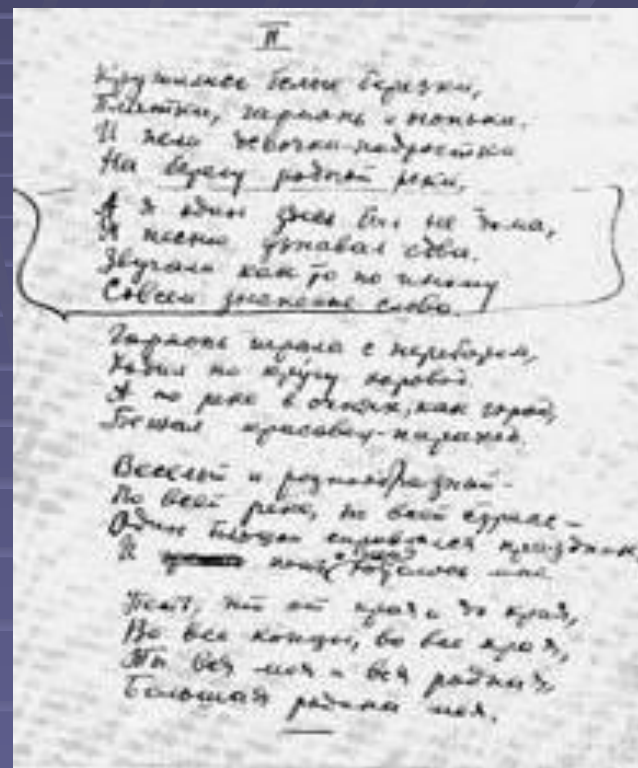 II
Кружились белые березки,
Платки, гармонь и
И пели девочки-подростки
На берегу родной реки.
А я один здесь был не дома,
Я песню узнавал едва.
Звучали как-то по иному
Совсем знакомые слова.
Гармонь играла с перебором,
Ходил по кругу хоровод,
А по реке в огнях, как город,
Бежал красавец-пароход.
Веселый и разнообразный
По всей реке, по всей стране –
Один большой справлялся праздник,
И петь хотелось мне
Петь, что от края и до края,
Во все концы, во все края,
Ты вся моя и вся родная,
Большая родина моя.